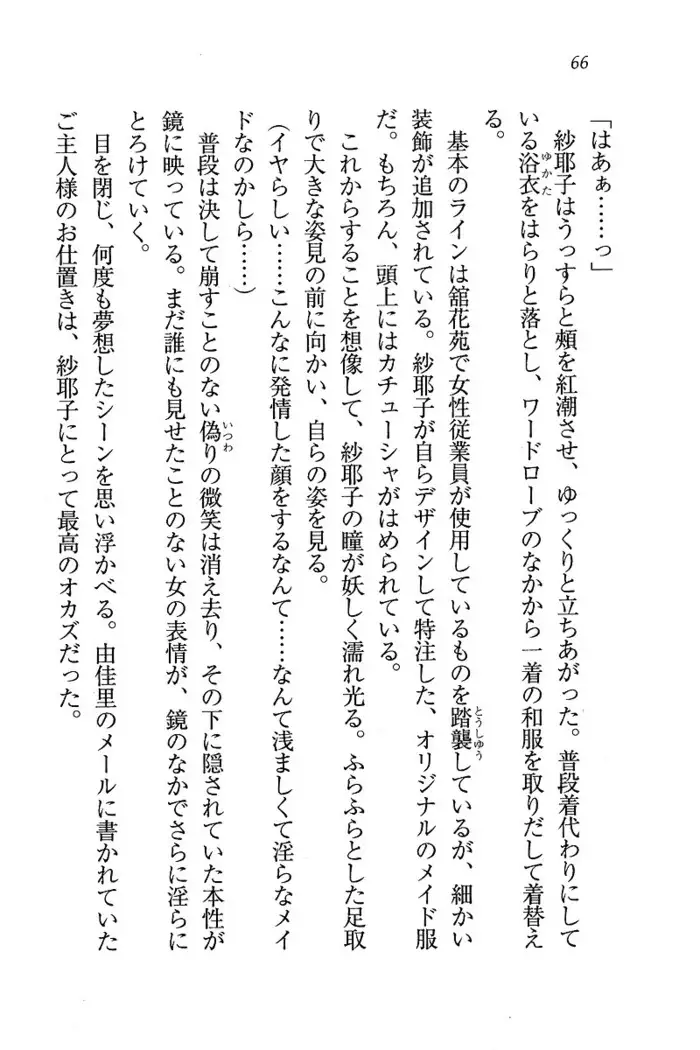 66
「はあぁ……っ」
　紗耶子はうっすらと頬を紅潮させ、ゆっくりと立ちあがった。普段着代わりにして
いる浴衣をはらりと落とし、ワードローブのなかから一着の和服を取りだして着替え
る。
　基本のラインは舘花苑で女性従業員が使用しているものを踏襲しているが、細かい
装飾が追加されている。紗耶子が自らデザインして特注した、オリジナルのメイド服
だ。もちろん、頭上にはカチューシャがはめられている。
　これからすることを想像して、紗耶子の瞳が妖しく濡れ光る。ふらふらとした足取
りで大きな姿見の前に向かい、自らの姿を見る。
（イヤらしい……こんなに発情した顔をするなんて……なんて浅ましくて淫らなメイ
ドなのかしら……）
　普段は決して崩すことのない偽りの微笑は消え去り、その下に隠されていた本性が
鏡に映っている。まだ誰にも見せたことのない女の表情が、鏡のなかでさらに淫らに
とろけていく。
　目を閉じ、何度も夢想したシーンを思い浮かべる。由佳里のメールに書かれていた
ご主人様のお仕置きは、紗耶子にとって最高のオカズだった。